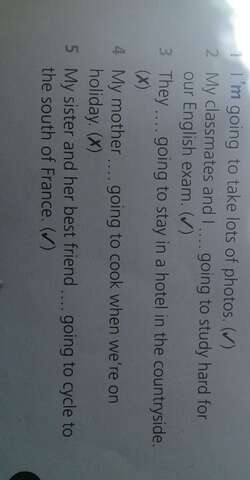 1 I'm going to take lots of photos. (✓)
2 My classmates and I .... going to study hard for
our English exam. (✓)
3 They .... going to stay in a hotel in the countryside.
(✗)
4 My mother .... going to cook when we're on
holiday. (✗)
5 My sister and her best friend .... going to cycle to
the south of France. (✓)